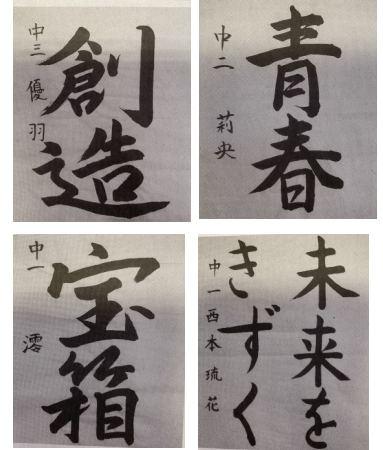 創造
中三 優羽
青春
中二 莉央
宝箱
中一 澪
未来を
きずく
中一 西本琉花